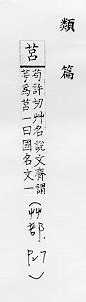 類篇
莒
苟許切艸名說文齊謂
芌爲莒一曰國名文一
(艸部.
P.7
)